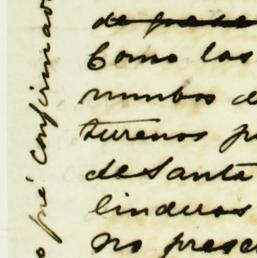 Como las
rumbos d
terrenos p
de Santa
linderos
no presc
o fué confirmado